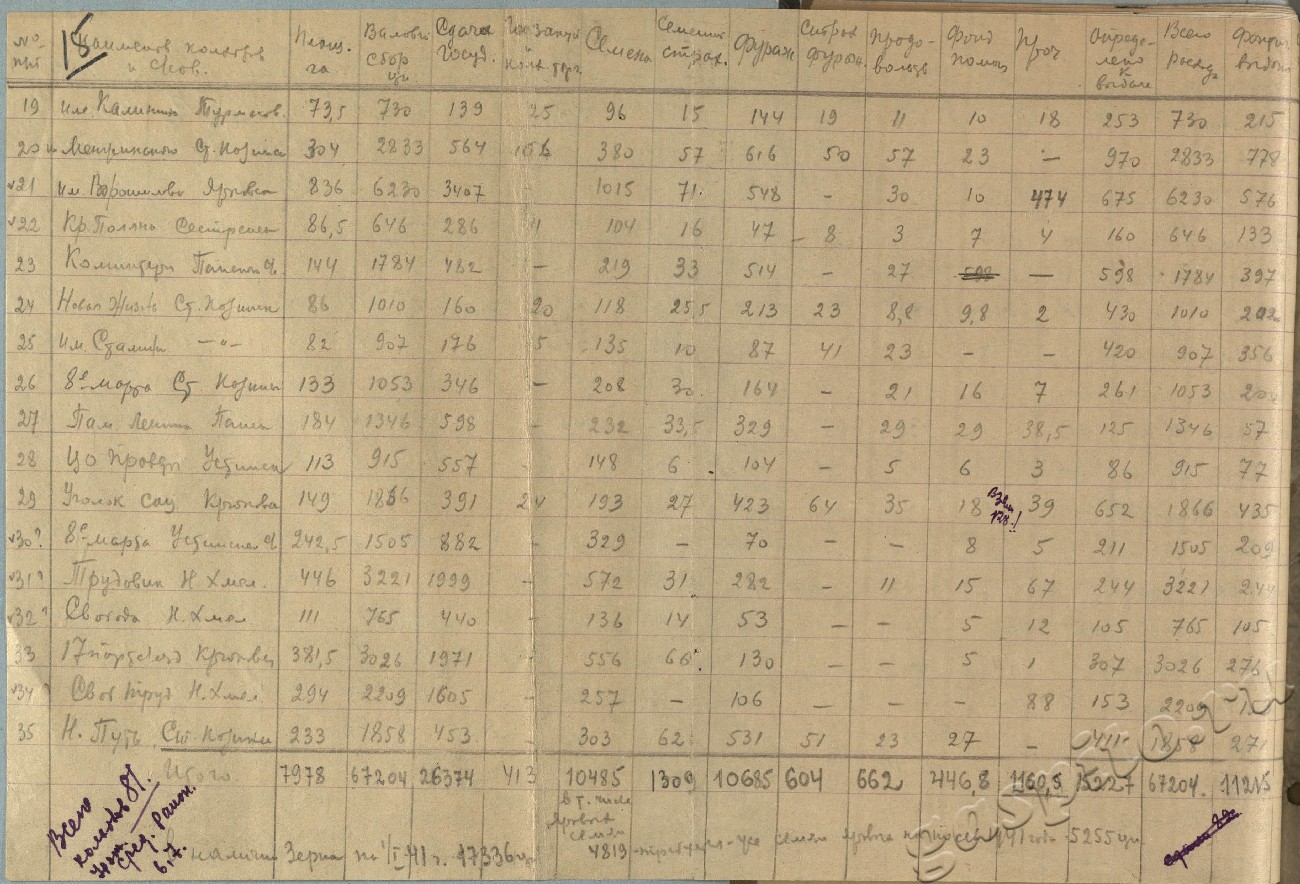 № п/п Наименов. колхозов и с/сов. Площ. га. Валовой сбор цн Сдача госуд. колх. торг. Семена Семенной страх. Фураж Страхов фураж. Продовольств Фонд помощ Проч. Определено к выдаче Всего расход Фактич. выдано
18
19 им. Калинина Турмасов. 73,5 730 139 25 96 15 144 19 11 10 18 253 730 215
20 Менжинского Ст. Козинка 304 2833 564 106 380 57 616 50 57 23 — 970 2833 778
√21 им. Ворошилова 836 6230 3407 - 1015 71 548 - 30 10 474 675 6230 576
√22 Кр. Поляна 86,5 646 286 4 104 16 47 8 3 7 4 160 646 133
23 Коминтерн 144 1784 482 - 219 33 514 - 27 598 — 598 1784 397
24 Новая Жизнь Ст. Козинки 86 1010 160 20 118 25,5 213 23 8,8 9,8 2 430 1010
25 им. Сталина —"— 82 907 176 5 135 10 87 41 23 - - 420 907 356
26 8е марта Ст Козинки 133 1053 346 - 208 30 164 - 21 16 7 261 1053
27 Пам. Ленина 184 1346 598 - 232 33,5 329 - 29 29 38,5 125 1346 57
28 ЦО Правды Устинск 113 915 557 148 6 104 - 5 6 3 86 915 77
29 Уголок соц. Крюковка 149 1866 391 24 193 27 423 64 35 18 39 652 1866 435
√30? 8е марта Устинская 242,5 1505 882 - 329 - 70 - - 8 5 211 1505 209
√31? Трудовик Н Хмел. 446 3221 1999 - 572 31 282 - 11 15 67 244 3221 244
√32? Свобода Н. Хмел 111 765 440 - 136 14 53 - - 5 12 105 765 105
33 17 партсъезд Крюковка 381,5 3026 1971 - 556 66 130 - - 5 1 307 3026 276
√34 Своб Труд Н. Хмел 294 2209 1605 - 257 - 106 - - - 88 153 2209
35 Н. Путь Ст. Козинки 233 1858 453 - 303 62 531 51 23 27 - 411 1858 271
Итого 7978 67204 26374 413 10485 1309 10685 604 662 446,8 1160,5 15227 67204 11215
Всего колхозов 81.
Сред. Район. 6,7.
в т. числе яровых семян
В наличии Зерна на 1/I-41 г. 17336 цн 4819 - требуется семян яровых на посев 1941 года - 5255 цн